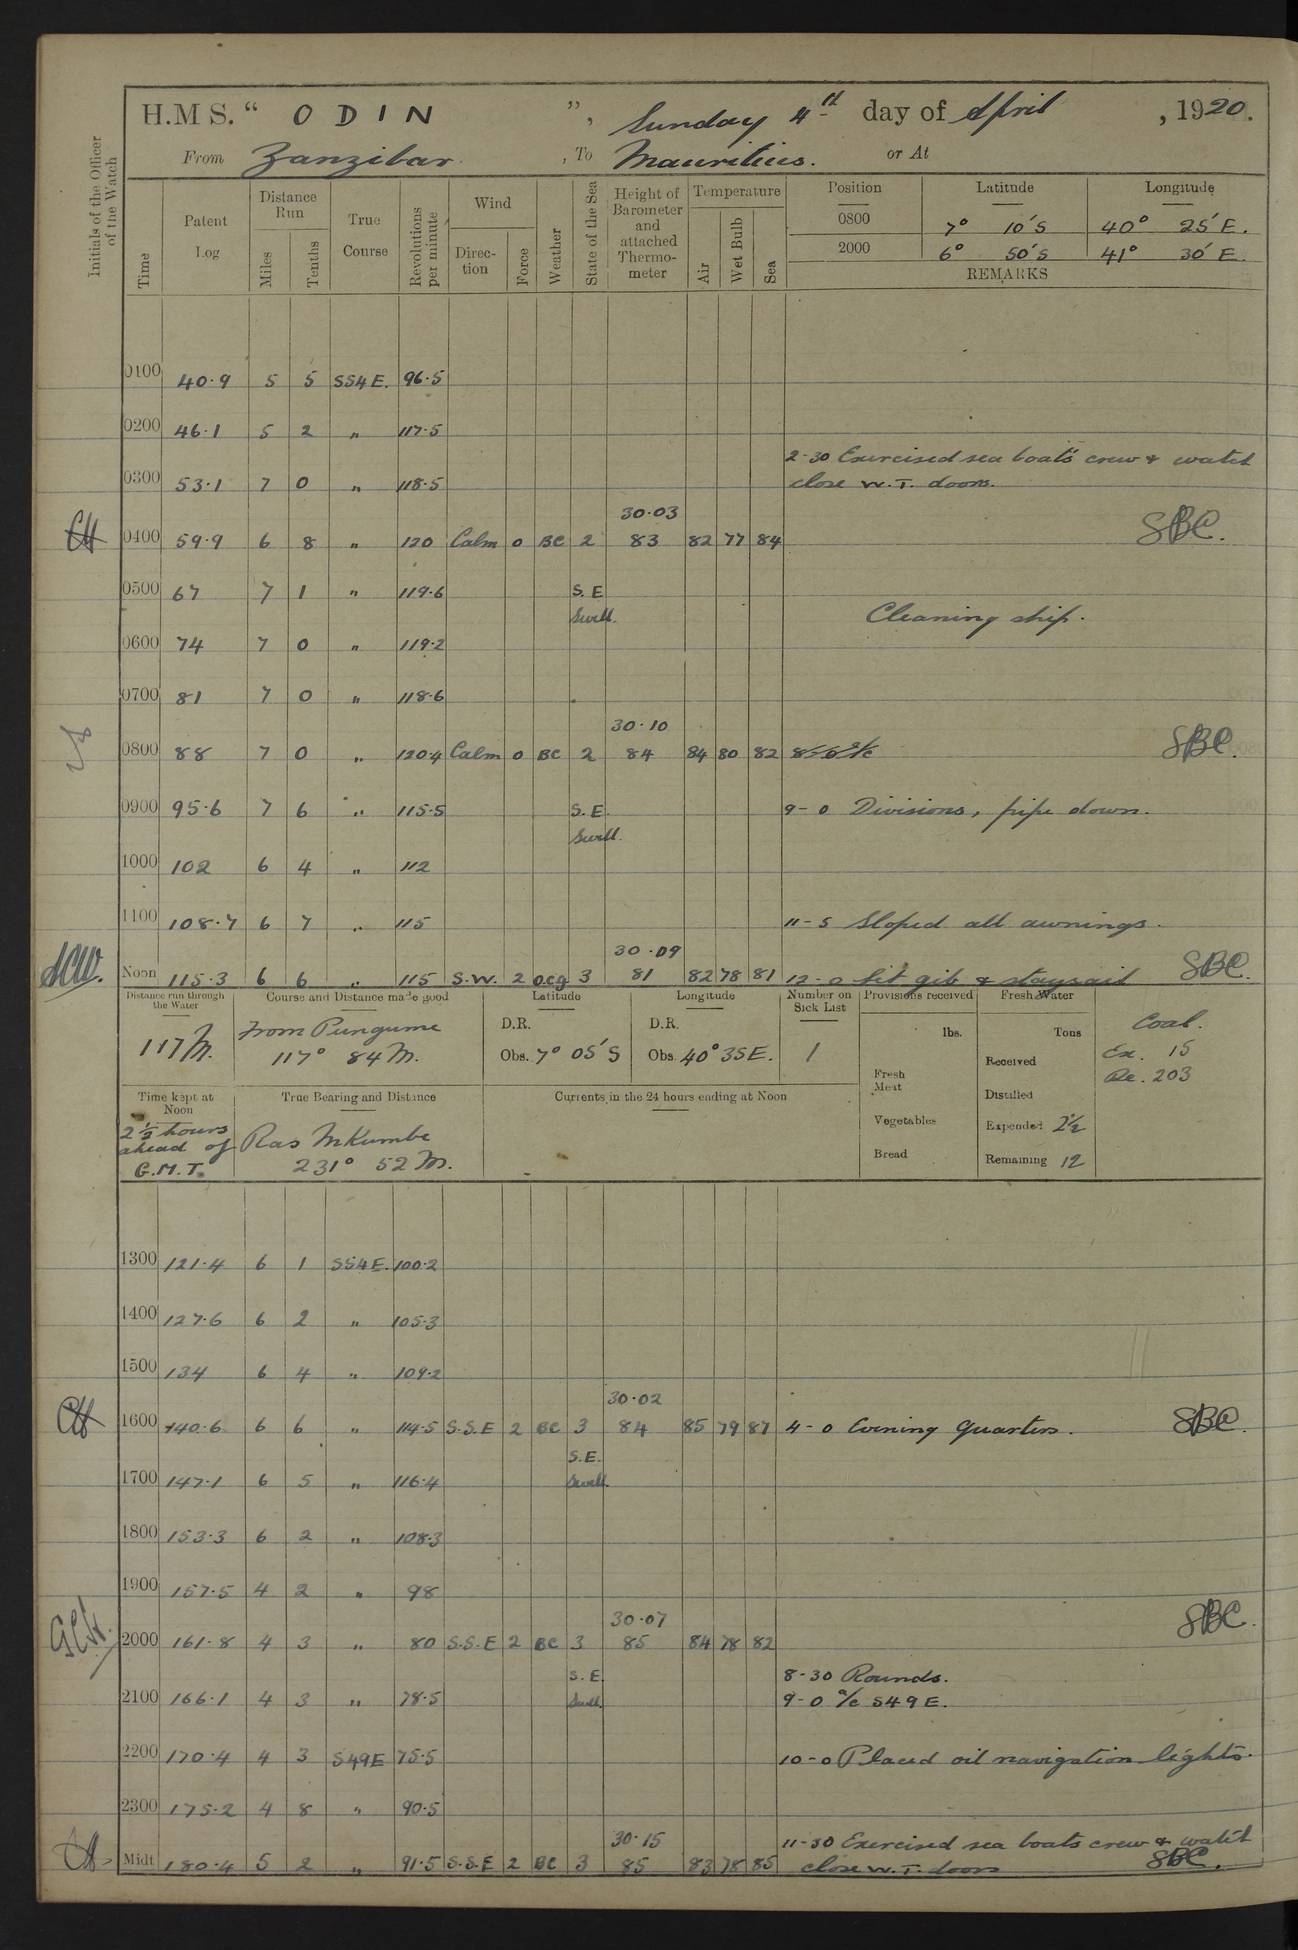 H.M S. “ ODIN ”, Sunday 4th day of April , 1920.
From Zanzibar , To Mauritius. or At
Initials of the Officer of the Watch
Time
Patent Log
Distance Run
Miles
Tenths
True Course
Revolutions per minute
Wind
Direc-tion
Force
Weather
State of the Sea
Height of Barometer and attached Thermo-meter
Temperature
Air
Wet Bulb
Sea
Position Latitude Longitude
0800 7° 10′ S 40° 25′ E.
2000 6° 50′ S 41° 30′ E.
REMARKS
0100 40·9 5 5 S54E. 96·5
0200 46·1 5 2 " 117·5
2-30 Exercised sea boat's crew & watch
0300 53·1 7 0 " 118·5 close W.T. doors.
30·03
0400 59·9 6 8 " 120 Calm 0 BC 2 83 82 77 84 SBC.
0500 67 7 1 " 119·6 S.E
Swell. Cleaning ship.
0600 74 7 0 " 119·2
0700 81 7 0 " 118·6
30·10
0800 88 7 0 " 120·4 Calm 0 BC 2 84 84 80 82 SBC.
0900 95·6 7 6 " 115·5 S.E. 9-0 Divisions, pipe down.
Swell.
1000 102 6 4 " 112
1100 108·7 6 7 " 115 11-5 Sloped all awnings.
30·09
Noon 115·3 6 6 " 115 S.W. 2 o.c.g 3 81 82 78 81 12-0 Set gib & staysail SBC.
Distance run through the Water
117 M.
Course and Distance made good
From Pungume
117° 84 M.
Latitude
D.R.
Obs. 7° 05′ S
Longitude
D.R.
Obs. 40° 35 E.
Number on Sick List
1
Provisions received
lbs.
Fresh Meat
Vegetables
Bread
Fresh Water
Tons
Received
Distilled
Expended 2½
Remaining 12
Coal.
Ex. 15
Re. 203
Time kept at Noon
2½ hours
ahead of
G.M.T.
True Bearing and Distance
Ras Mkumbe
231° 52 M.
Currents in the 24 hours ending at Noon
1300 121·4 6 1 S54E. 100·2
1400 127·6 6 2 " 105·3
1500 134 6 4 " 109·2
30·02
1600 140·6 6 6 " 114·5 S.S.E 2 BC 3 84 85 79 87 4-0 Evening Quarters. SBC.
S.E.
1700 147·1 6 5 " 116·4 Swell.
1800 153·3 6 2 " 108·3
1900 157·5 4 2 " 98
30·07 SBC.
2000 161·8 4 3 " 80 S.S.E 2 BC 3 85 84 78 82
S.E. 8-30 Rounds.
2100 166·1 4 3 " 78·5 Swell. 9-0 a/c S49E.
2200 170·4 4 3 S49E 75·5 10-0 Placed oil navigation lights.
2300 175·2 4 8 " 90·5
30·15 11-30 Exercised sea boats crew & watch
Midt 180·4 5 2 " 91·5 S.S.E 2 BC 3 85 83 78 85 close W.T. doors SBC.